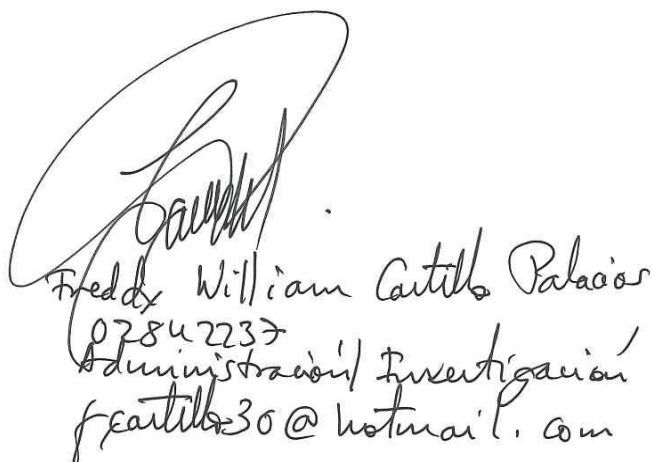 Freddy William Castillo Palacios
02842237
Administración/Investigación
fcastillo30@hotmail.com